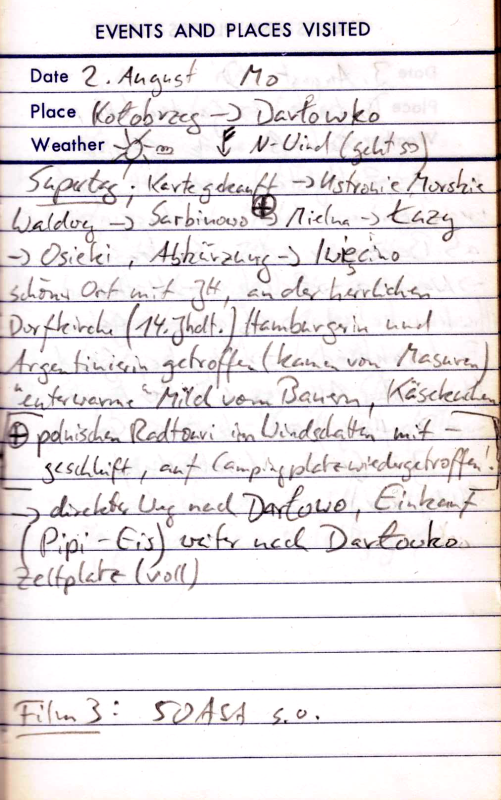 EVENTS AND PLACES VISITED
Date 2. August Mo
Place Kołobrzeg -> Darłowko
Weather N-Wind (geht so)
Supertag; Karte gekauft -> Ustronie Morskie
-> Sarbinowo ⊕ -> Mielna -> Łazy
-> Osieki, Abkürzung -> Iwięcino
schöner Ort mit JH, an der herrlichen
Dorfkirche (14. Jhdt.) Hamburgerin und
Argentinierin getroffen (kamen von Masuren)
"enterwarme" Milch vom Bauern, Käsekuchen
⊕ polnischen Radtouri im Windschatten mit-
geschleift, auf Campingplatz wiedergetroffen!
-> direkter Weg nach Darłowo, Einkauf
(Pipi-Eis) weiter nach Darłowko
Zeltplatz (voll)
Film 3: 50ASA s.o.